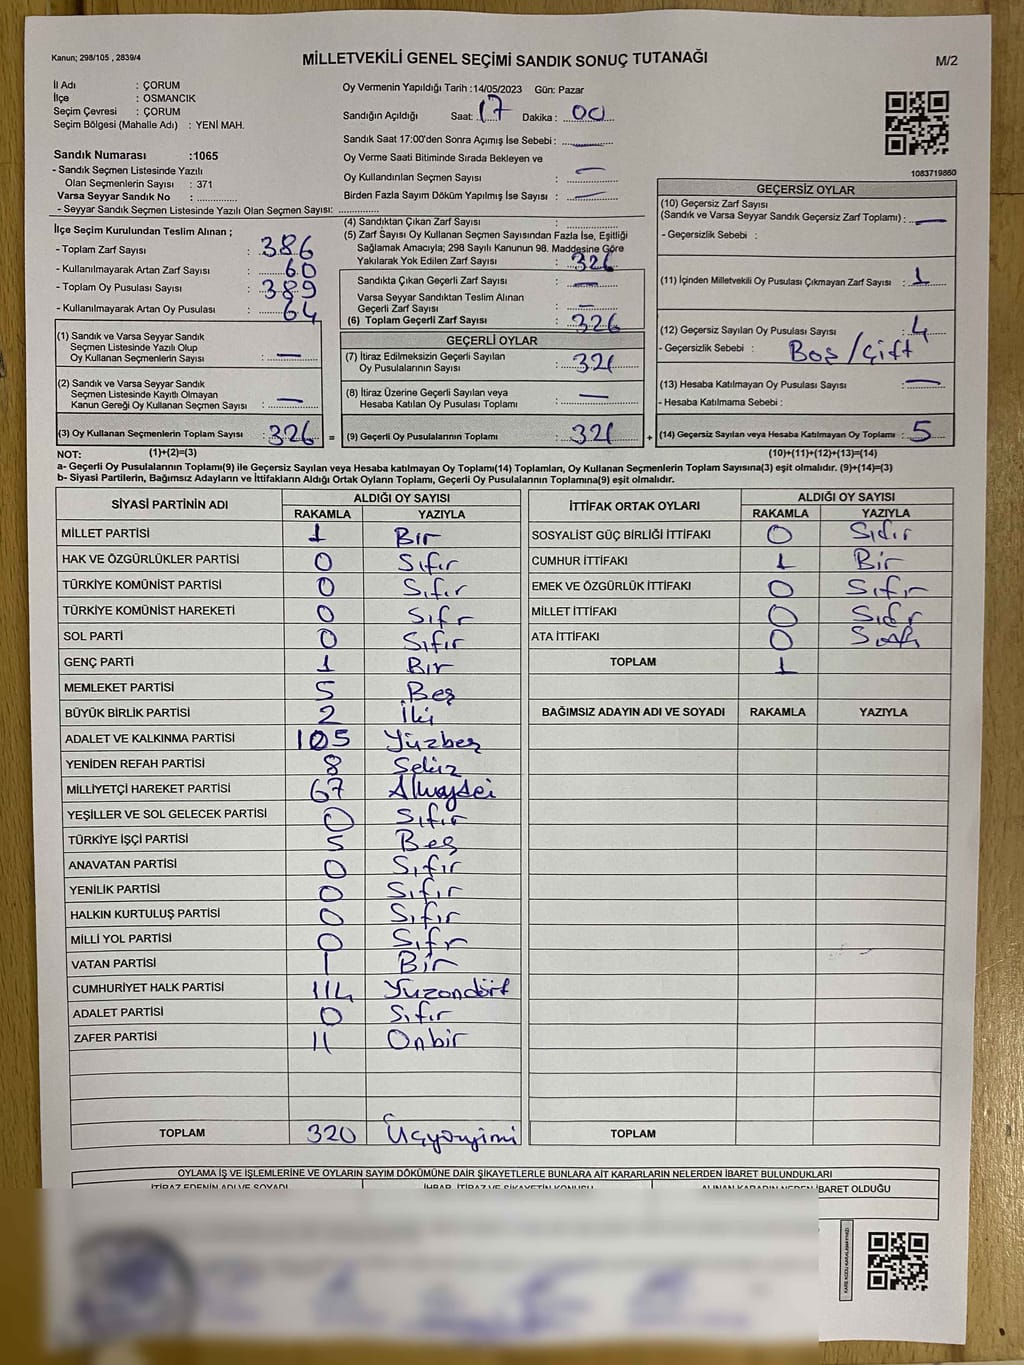 Kanun; 298/105 , 2839/4
MİLLETVEKİLİ GENEL SEÇİMİ SANDIK SONUÇ TUTANAĞI
M/2
İl Adı : ÇORUM
İlçe : OSMANCIK
Seçim Çevresi : ÇORUM
Seçim Bölgesi (Mahalle Adı) : YENİ MAH.
Sandık Numarası :1065
- Sandık Seçmen Listesinde Yazılı
Olan Seçmenlerin Sayısı : 371
Varsa Seyyar Sandık No : ..............
- Seyyar Sandık Seçmen Listesinde Yazılı Olan Seçmen Sayısı: ..............
Oy Vermenin Yapıldığı Tarih :14/05/2023 Gün: Pazar
Sandığın Açıldığı Saat: 17 Dakika : 00
Sandık Saat 17:00'den Sonra Açımış İse Sebebi : —
Oy Verme Saati Bitiminde Sırada Bekleyen ve
Oy Kullandırılan Seçmen Sayısı : —
Birden Fazla Sayım Döküm Yapılmış İse Sayısı : —
1083719860
İlçe Seçim Kurulundan Teslim Alınan ;
- Toplam Zarf Sayısı : 386
- Kullanılmayarak Artan Zarf Sayısı : 60
- Toplam Oy Pusulası Sayısı : 389
- Kullanılmayarak Artan Oy Pusulası : 64
(1) Sandık ve Varsa Seyyar Sandık
Seçmen Listesinde Yazılı Olup
Oy Kullanan Seçmenlerin Sayısı : —
(2) Sandık ve Varsa Seyyar Sandık
Seçmen Listesinde Kayıtlı Olmayan
Kanun Gereği Oy Kullanan Seçmen Sayısı : —
(3) Oy Kullanan Seçmenlerin Toplam Sayısı : 326 =
(4) Sandıktan Çıkan Zarf Sayısı :
(5) Zarf Sayısı Oy Kullanan Seçmen Sayısından Fazla İse, Eşitliği
Sağlamak Amacıyla; 298 Sayılı Kanunun 98. Maddesine Göre
Yakılarak Yok Edilen Zarf Sayısı : 326
Sandıkta Çıkan Geçerli Zarf Sayısı : —
Varsa Seyyar Sandıktan Teslim Alınan
Geçerli Zarf Sayısı : —
(6) Toplam Geçerli Zarf Sayısı : 326
GEÇERLİ OYLAR
(7) İtiraz Edilmeksizin Geçerli Sayılan
Oy Pusulalarının Sayısı : 321
(8) İtiraz Üzerine Geçerli Sayılan veya
Hesaba Katılan Oy Pusulası Toplamı : —
(9) Geçerli Oy Pusulalarının Toplamı : 321 +
GEÇERSİZ OYLAR
(10) Geçersiz Zarf Sayısı
(Sandık ve Varsa Seyyar Sandık Geçersiz Zarf Toplamı) : —
- Geçersizlik Sebebi :
(11) İçinden Milletvekili Oy Pusulası Çıkmayan Zarf Sayısı : 1
(12) Geçersiz Sayılan Oy Pusulası Sayısı : 4
- Geçersizlik Sebebi : Boş / Çift
(13) Hesaba Katılmayan Oy Pusulası Sayısı : —
- Hesaba Katılmama Sebebi :
(14) Geçersiz Sayılan veya Hesaba Katılmayan Oy Toplamı : 5
NOT: (1)+(2)=(3) (10)+(11)+(12)+(13)=(14)
a- Geçerli Oy Pusulalarının Toplamı(9) ile Geçersiz Sayılan veya Hesaba katılmayan Oy Toplamı(14) Toplamları, Oy Kullanan Seçmenlerin Toplam Sayısına(3) eşit olmalıdır. (9)+(14)=(3)
b- Siyasi Partilerin, Bağımsız Adayların ve İttifakların Aldığı Ortak Oyların Toplamı, Geçerli Oy Pusulalarının Toplamına(9) eşit olmalıdır.
SİYASİ PARTİNİN ADI ALDIĞI OY SAYISI
RAKAMLA YAZIYLA
MİLLET PARTİSİ 1 Bir
HAK VE ÖZGÜRLÜKLER PARTİSİ 0 Sıfır
TÜRKİYE KOMÜNİST PARTİSİ 0 Sıfır
TÜRKİYE KOMÜNİST HAREKETİ 0 Sıfr
SOL PARTİ 0 Sıfır
GENÇ PARTİ 1 Bır
MEMLEKET PARTİSİ 5 Beş
BÜYÜK BİRLİK PARTİSİ 2 İki
ADALET VE KALKINMA PARTİSİ 105 Yüzbeş
YENİDEN REFAH PARTİSİ 8 Sekiz
MİLLİYETÇİ HAREKET PARTİSİ 67
YEŞİLLER VE SOL GELECEK PARTİSİ 0 Sıfır
TÜRKİYE İŞÇİ PARTİSİ 5 Beş
ANAVATAN PARTİSİ 0 Sıfır
YENİLİK PARTİSİ 0 Sıfır
HALKIN KURTULUŞ PARTİSİ 0 Sıfır
MİLLİ YOL PARTİSİ 0 Sıfr
VATAN PARTİSİ 1 Bir
CUMHURİYET HALK PARTİSİ 114 Yüzondört
ADALET PARTİSİ 0 Sıfır
ZAFER PARTİSİ 11 Onbir
TOPLAM 320 Üçyüzyirmi
İTTİFAK ORTAK OYLARI ALDIĞI OY SAYISI
RAKAMLA YAZIYLA
SOSYALİST GÜÇ BİRLİĞİ İTTİFAKI 0 Sıfır
CUMHUR İTTİFAKI 1 Bir
EMEK VE ÖZGÜRLÜK İTTİFAKI 0 Sıfır
MİLLET İTTİFAKI 0 Sıfr
ATA İTTİFAKI 0 Sıfır
TOPLAM 1
BAĞIMSIZ ADAYIN ADI VE SOYADI RAKAMLA YAZIYLA
TOPLAM
OYLAMA İŞ VE İŞLEMLERİNE VE OYLARIN SAYIM DÖKÜMÜNE DAİR ŞİKAYETLERLE BUNLARA AİT KARARLARIN NELERDEN İBARET BULUNDUKLARI
İTİRAZ EDENİN ADI VE SOYADI İHBAR, İTİRAZ VE ŞİKAYETİN KONUSU ALINAN KARARIN NEDEN İBARET OLDUĞU